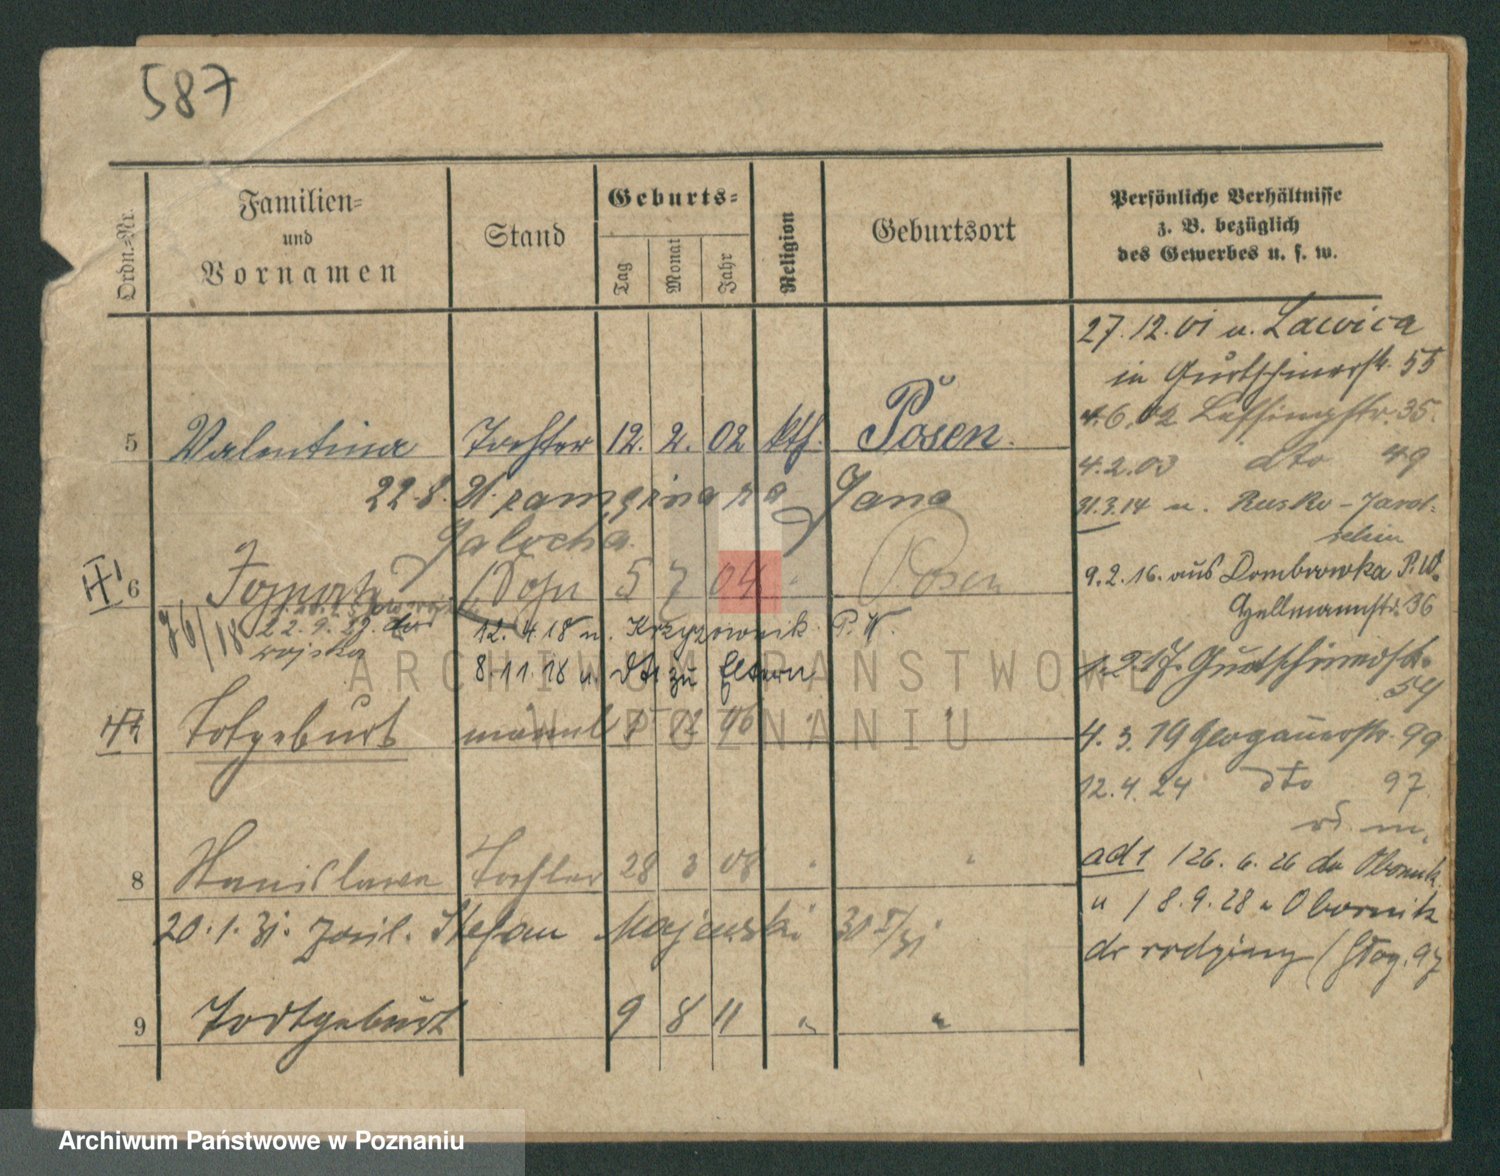 587
Ordn.-Nr.
Familien-
und
Vornamen
Stand
Geburts-
Tag
Monat
Jahr
Religion
Geburtsort
Persönliche Verhältnisse
z. B. bezüglich
des Gewerbes u. s. w.
27.12.01 n. Lawica
in Gurtschinerstr. 55
4.6.02 Lessingstr. 35.
5 Valentina Tochter 12. 2. 02 kth. Posen.
4.2.03 dto 49
22.8. 21. zamężna za Jana
31.3.14 n. Rusko - Jarot-
schin
Jalocha
9.2.16. aus Dombrowka P.W.
6 Sohn 5 7 04 " Posen
Hellmannstr. 36
76/18
22.9.29. do
wojska
12.4.18 n. Krzyzownik P.W.
8.11.18 n. dto zu Eltern
1.2.17. Gurtschinerstr.
54
Totgeburt männl 12 06 " "
4.3.19 Glogauerstr. 99
12.4.24 dto 97
8 Stanislawa Tochter 28 3 08 " "
ad 1 / 26.6.26 do Obornik
20.1.31. Stefan Majewski 30 I/31
" / 8.9.28 " Obornik
do rodziny (Głog. 97
9 Todtgeburt 9 8 11 " "
ARCHIWUM PAŃSTWOWE
W POZNANIU
Archiwum Państwowe w Poznaniu